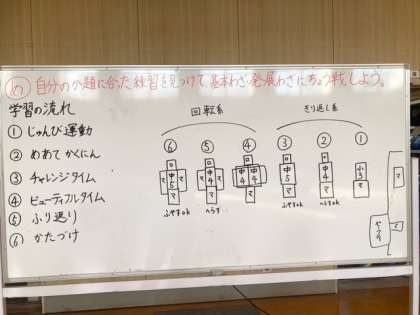 め 自分のか題に合った練習を見つけて、基本わざ・発展わざにちょう戦しよう。
学習の流れ
① じゅんび運動
② めあてかくにん
③ チャレンジタイム
④ ビューティフルタイム
⑤ ふり返り
⑥ かたづけ
回転系
きり返し系
⑥ ⑤ ④ ③ ② ①
ロ ロ ロ ロ ロ
マ 中5 マ マ 中4 マ マ 中4 中4 マ 中5 中4 小5
マ マ マ マ マ マ
ふやすok へらす ふやすok へらすok
マ
マ